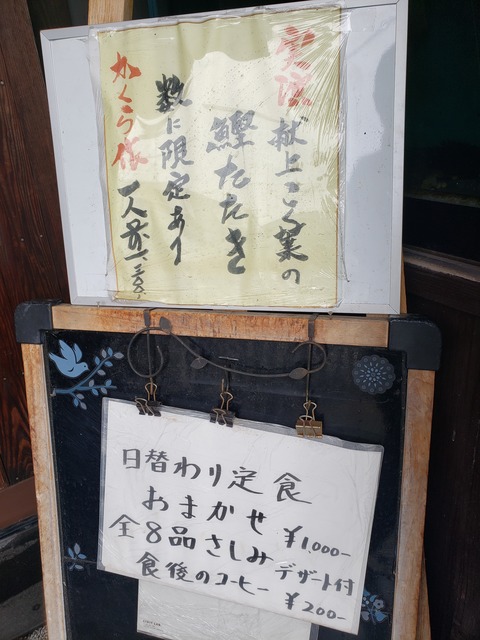 献上こち葉の
鰹たたき
数に限定あり
わくら依
一人前一、三〇〇、
日替わり定食
おまかせ ¥1,000-
全8品さしみ デザート付
食後のコーヒー ¥200-